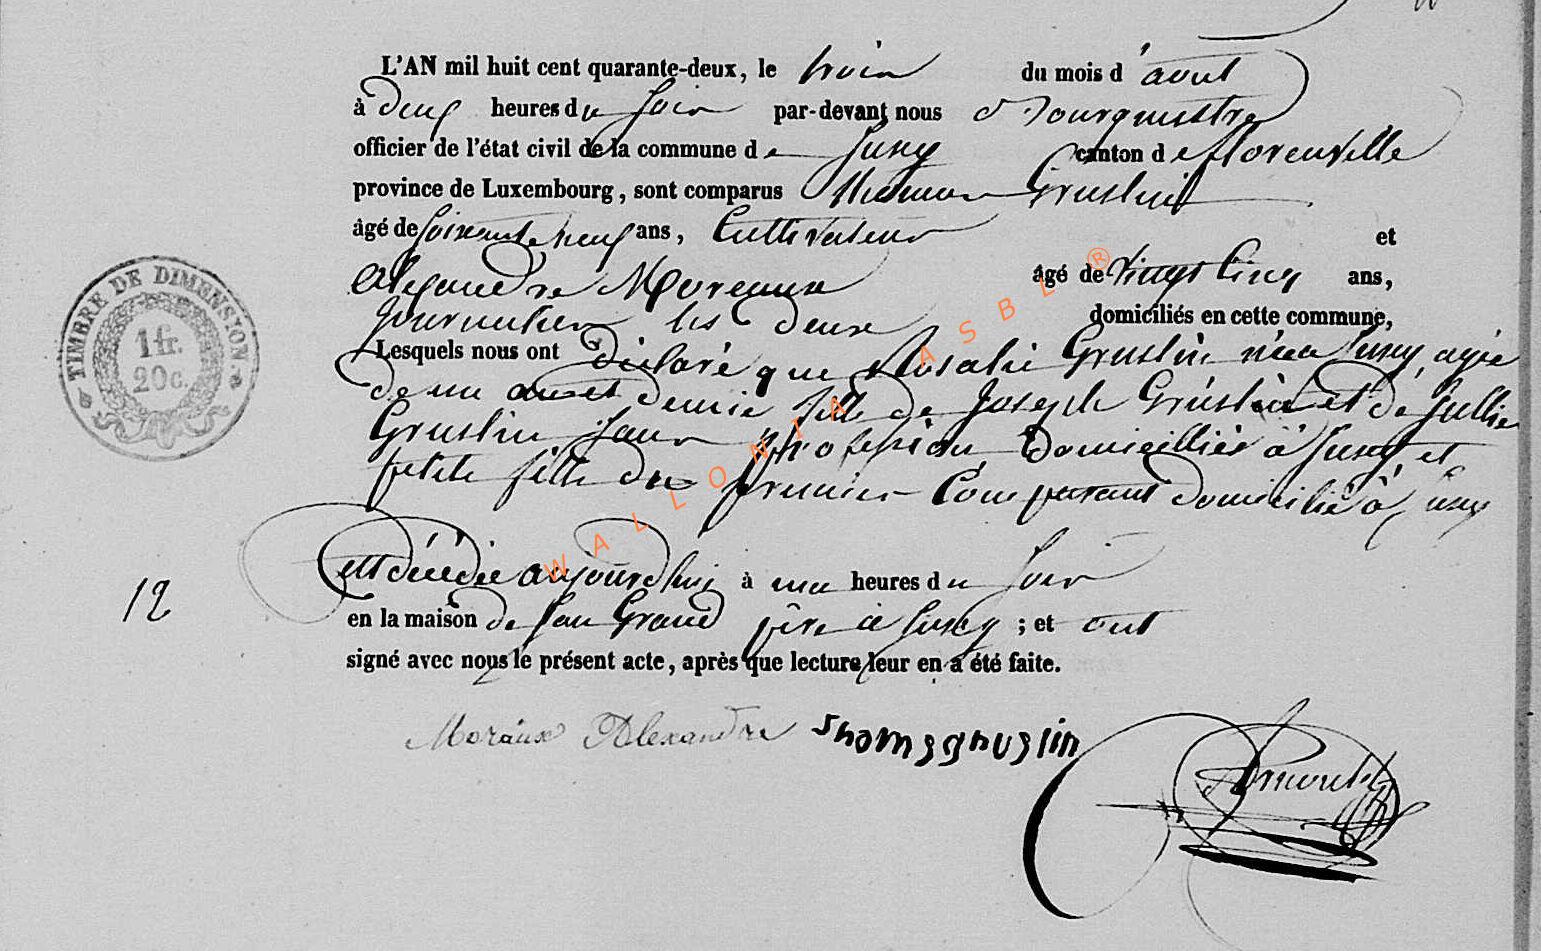 L'AN mil huit cent quarante-deux, le trois du mois d'aout
à deux heures du Soir par-devant nous
officier de l'état civil de la commune de Suxy canton de florenville
province de Luxembourg, sont comparus Thomas Gruslin
âgé de soixante neuf ans, Cultivateur et
Alexandre Moreaux âgé de vingt Cinq ans,
Journalier les deux domiciliés en cette commune,
Lesquels nous ont déclaré que Rosalie Gruslin née a Suxy, agée
de un an et demie fille de Joseph Gruslin et de Jullie
Gruslin sans profession domiciliés à Suxy et
petite fille du premier Comparant domicilié à Suxy
Est décédée aujourdhui à une heures du Soir
12
en la maison de son Grand père a Suxy ; et ont
signé avec nous le présent acte, après que lecture leur en a été faite.
Moraux Alexandre Thomas gruslin
TIMBRE DE DIMENSION.
1 fr.
20 c.
WALLONIA ASBL ®